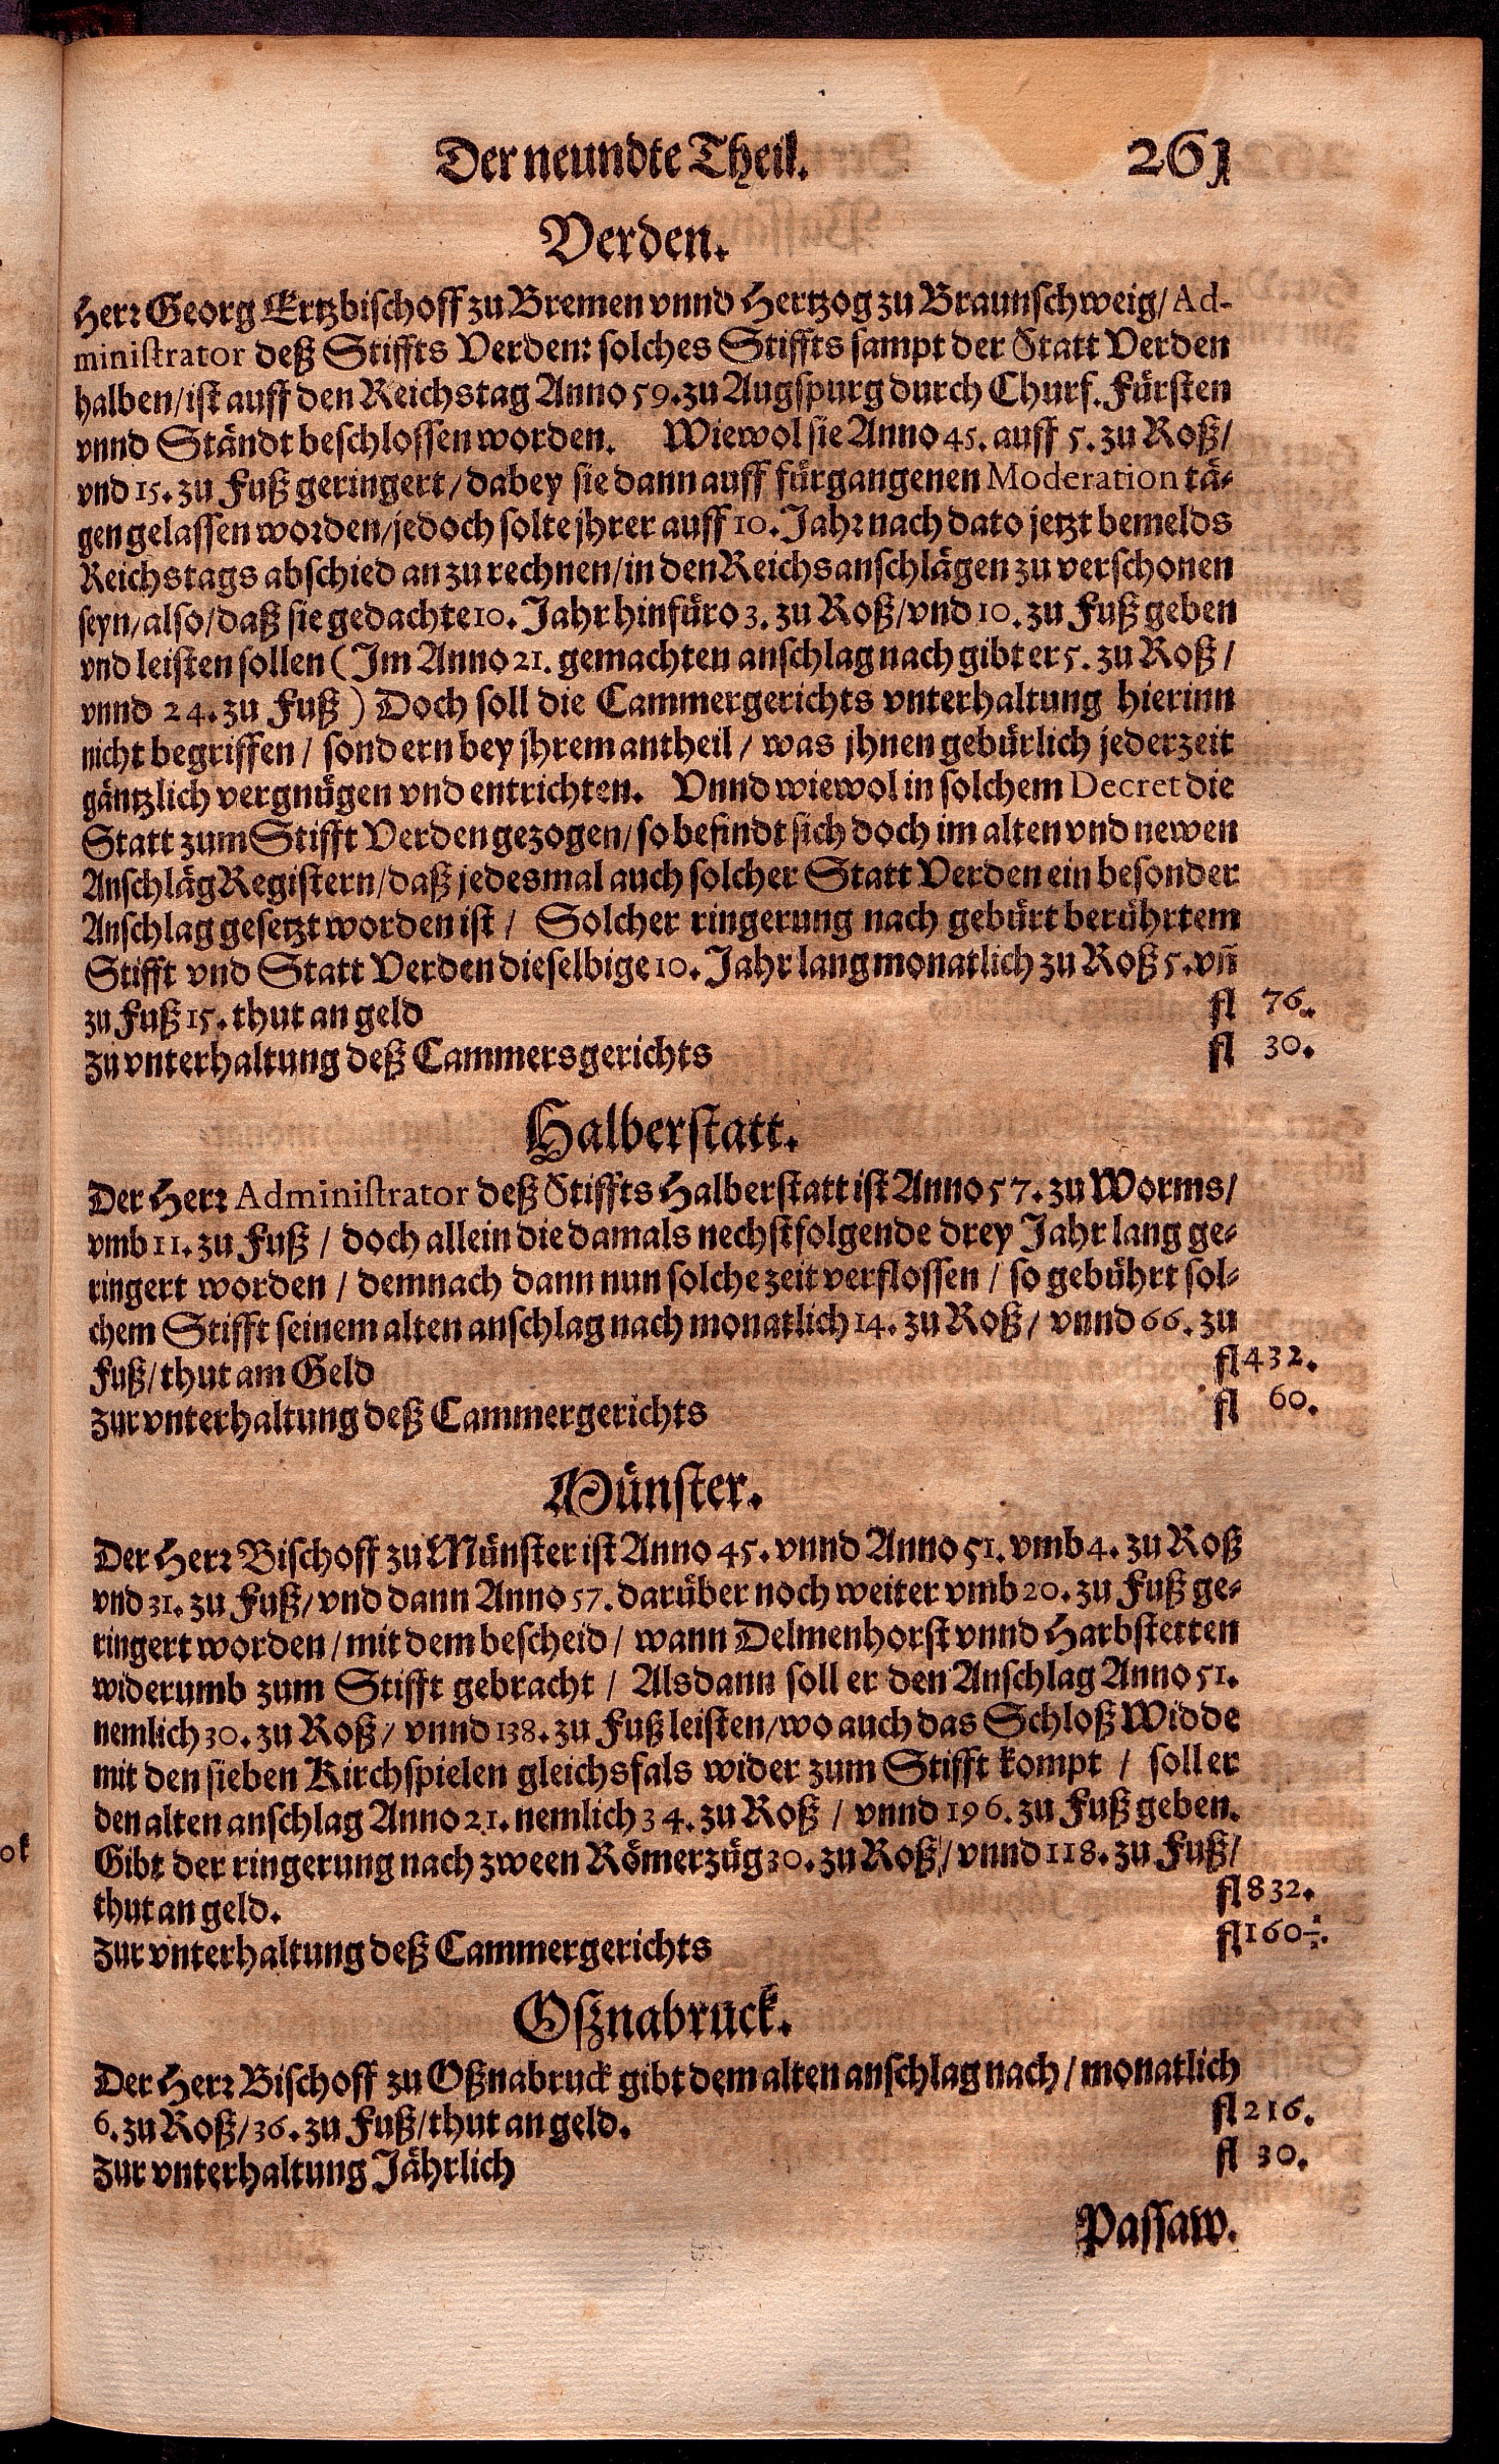 Der neundte Theil. 261
Verden.
Herr Georg Ertzbischoff zu Bremen vnnd Hertzog zu Braunschweig/ Ad-
ministrator deß Stiffts Verden: solches Stiffts sampt der Statt Verden
halben/ ist auff den Reichstag Anno 59. zu Augspurg durch Churf. Fürsten
vnnd Ständt beschlossen worden. Wiewol sie Anno 45. auff 5. zu Roß/
vnd 15. zu Fuß geringert/ dabey sie dann auff fürgangenen Moderation tä-
gen gelassen worden/ jedoch solte jhrer auff 10. Jahr nach dato jetzt bemelds
Reichstags abschied an zu rechnen/ in den Reichsanschlägen zu verschonen
seyn/ also/ daß sie gedachte 10. Jahr hinfüro 3. zu Roß/ vnd 10. zu Fuß geben
vnd leisten sollen (Im Anno 21. gemachten anschlag nach gibt er 5. zu Roß/
vnnd 24. zu Fuß) Doch soll die Cammergerichts vnterhaltung hierinn
nicht begriffen/ sondern bey jhrem antheil/ was jhnen gebürlich jederzeit
gäntzlich vergnügen vnd entrichten. Vnnd wiewol in solchem Decret die
Statt zum Stifft Verden gezogen/ so befindt sich doch im alten vnd newen
Anschläg Registern/ daß jedesmal auch solcher Statt Verden ein besonder
Anschlag gesetzt worden ist/ Solcher ringerung nach gebürt berührtem
Stifft vnd Statt Verden dieselbige 10. Jahr lang monatlich zu Roß 5. vñ
zu Fuß 15. thut an geld fl 76.
Zu vnterhaltung deß Cammersgerichts fl 30.
Halberstatt.
Der Herr Administrator deß Stiffts Halberstatt ist Anno 57. zu Worms/
vmb 11. zu Fuß/ doch allein die damals nechstfolgende drey Jahr lang ge-
ringert worden/ demnach dann nun solche zeit verflossen/ so gebührt sol-
chem Stifft seinem alten anschlag nach monatlich 14. zu Roß/ vnnd 66. zu
Fuß/ thut am Geld fl 432.
Zur vnterhaltung deß Cammergerichts fl 60.
Münster.
Der Herr Bischoff zu Münster ist Anno 45. vnnd Anno 51. vmb 4. zu Roß
vnd 31. zu Fuß/ vnd dann Anno 57. darüber noch weiter vmb 20. zu Fuß ge-
ringert worden/ mit dem bescheid/ wann Delmenhorst vnnd Harbstetten
widerumb zum Stifft gebracht/ Alsdann soll er den Anschlag Anno 51.
nemlich 30. zu Roß/ vnnd 138. zu Fuß leisten/ wo auch das Schloß Widde
mit den sieben Kirchspielen gleichsfals wider zum Stifft kompt/ soll er
den alten anschlag Anno 21. nemlich 34. zu Roß/ vnnd 196. zu Fuß geben.
Gibt der ringerung nach zween Römerzüg 30. zu Roß/ vnnd 118. zu Fuß/
thut an geld. fl 832.
Zur vnterhaltung deß Cammergerichts fl 160
Oßnabruck.
Der Herr Bischoff zu Oßnabruck gibt dem alten anschlag nach/ monatlich
6. zu Roß/ 36. zu Fuß/ thut an geld. fl 216.
Zur vnterhaltung Jährlich fl 30.
Passaw.